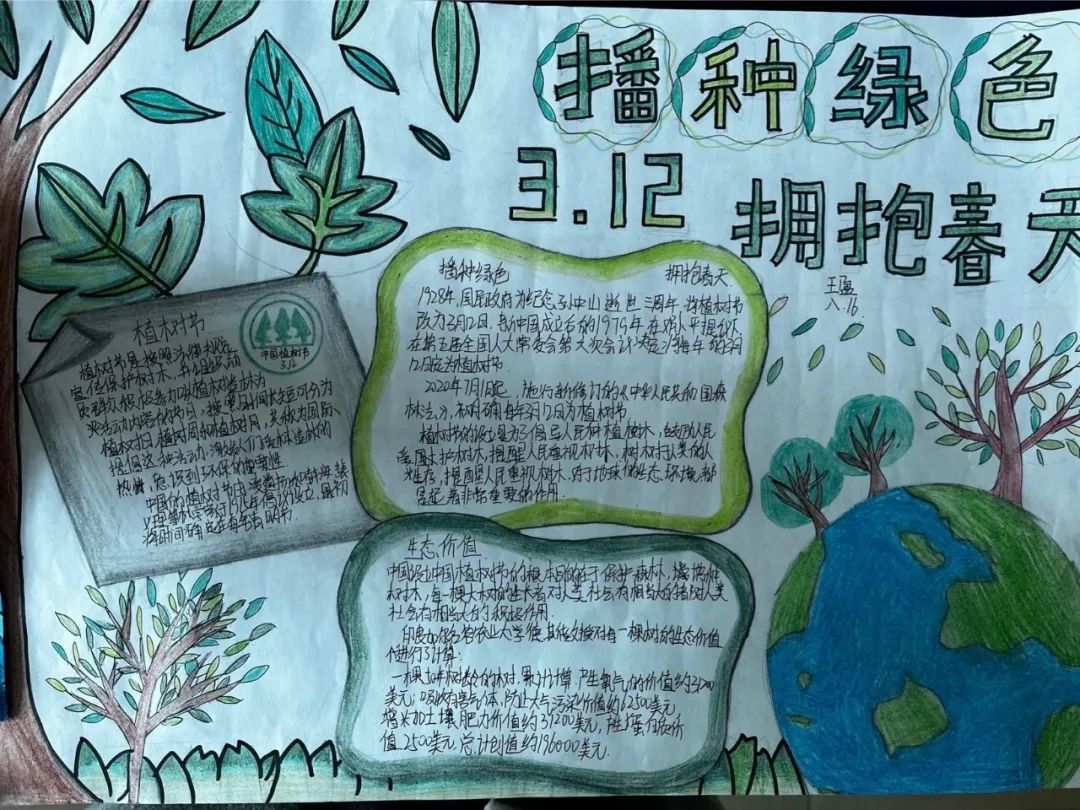 播种绿色
3.12
拥抱春天
王
八.16.
植树节
中国植树节
3.12
植树节是按照法律规定
宣传保护树木,并组织动员
群众积极参加以植树造林为
活动内容的节日,按时间长短可分为
植树日、植树周和植树月,共称为国际
提倡这种活动,激发人们爱林造林的
热情、意识到环保的重要性
中国的植树节由凌道扬和韩安、裴
义理等林学家于1915年倡议设立,最初
将时间确定在每年清明节.
播种绿色 拥抱春天
1928年,国民政府为纪念孙中山逝世三周年,将植树节
改为3月12日.新中国成立后的1979年,在邓小平提议下,
在第五届全国人大常委会第六次会议决定将每年的3月
12日定为植树节.
2020年7月1日起,施行新修订的《中华人民共和国森
林法》,明确每年3月12日为植树节.
植树节的设立是为了倡导人民种植树木,鼓励人民
爱护树木,提醒人民重视树木.
难行,提醒人民重视树木.对于地球的生态环境都
是起着非常重要的作用.
生态价值
中国设立中国植树节的根本目的在于保护森林,
树木,每一棵大树的生长者对人类社会有相当大的
社会有相当大的积极作用.
印度加尔各答农业大学德其佐教授对每一棵树的生态价值
进行了计算:
一棵50年树龄的树,累计计算,产生氧气的价值约31200
美元;吸收有毒气体,防止大气污染价值约62500美元,
增加土壤肥力价值约31200美元,产生蛋白质价
值2500美元,总计创值约196000美元.